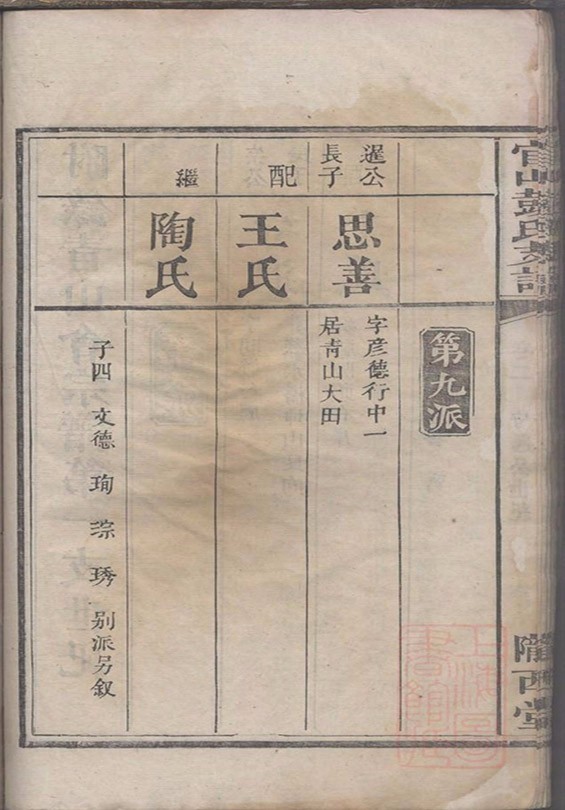 官山彭氏支譜
隴西堂
第九派
暹公
長子
思善
字彥德行中一
居青山大田
配
王氏
繼
陶氏
子四 文德 珣 琮 琇 別派另叙